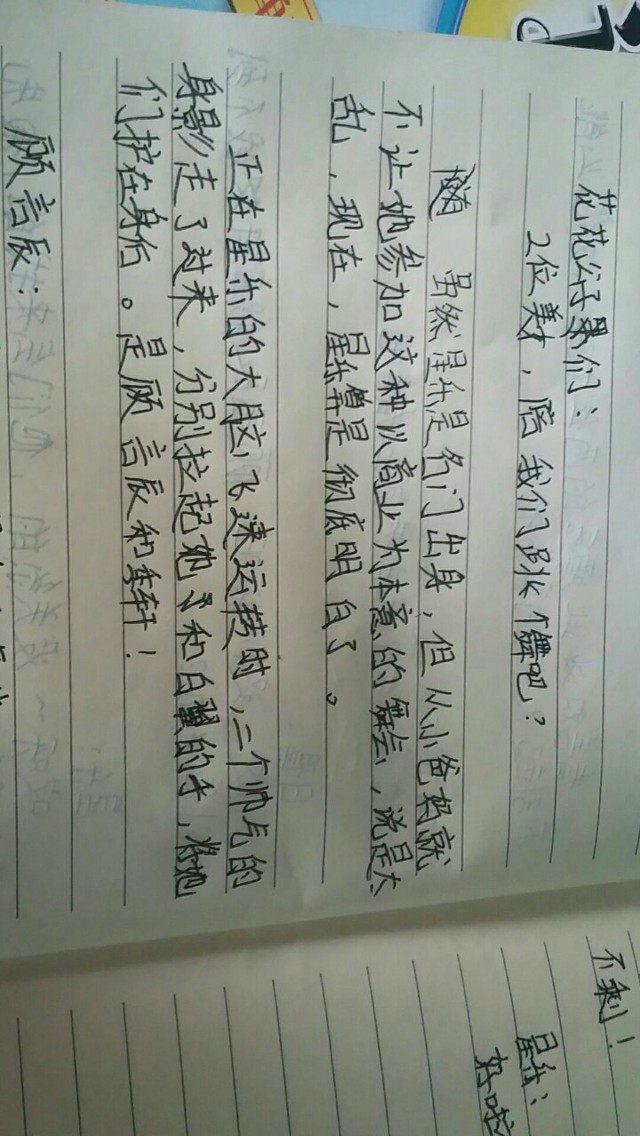 花花公子男们：
2位美女，陪我们跳个舞吧？
虽然星乐是名门出身，但从小爸妈就
不让她参加这种以商业为本意的舞会，说是太
乱，现在，星乐算是彻底明白了。
正在星乐的大脑飞速运转时，二个帅气的
身影走了过来，分别拉起她和白翼的手，将她
们护在身后。是顾言辰和轩！
顾言辰：
不剩！
星乐：
好啦